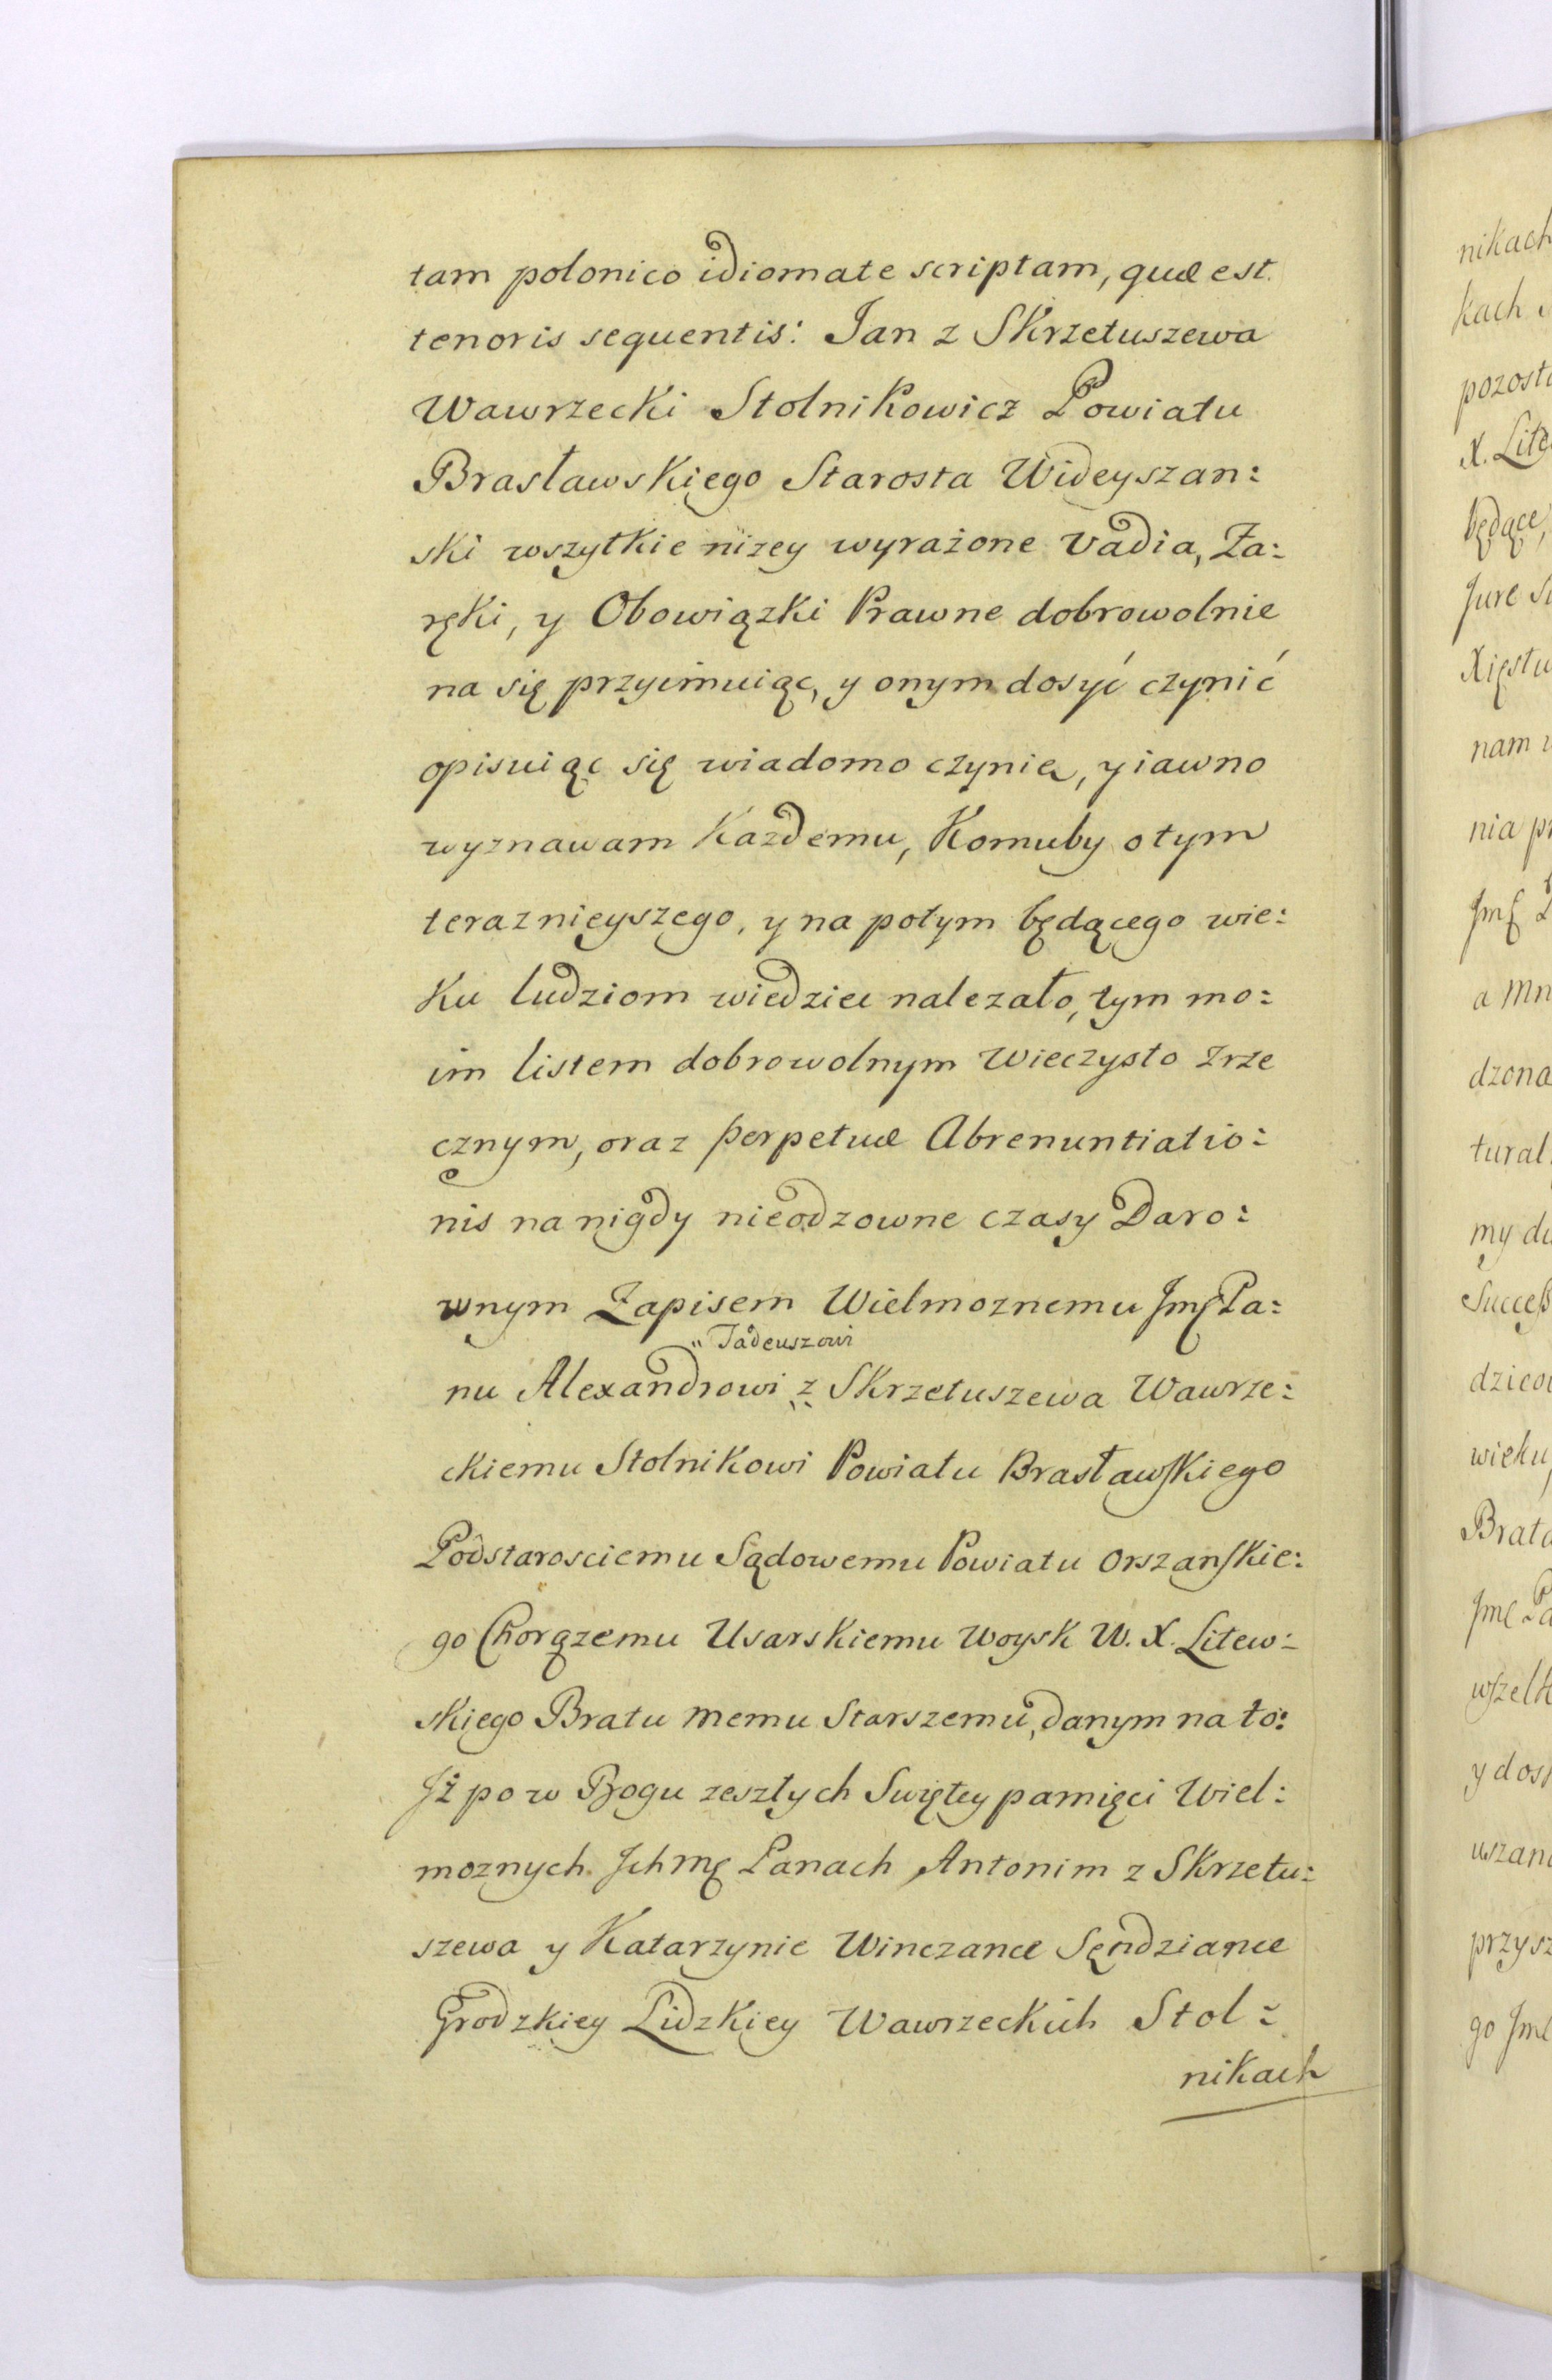 tam polonico idiomate scriptam, quæ est
tenoris sequentis: Jan z Skrzetuszewa
Wawrzecki Stolnikowicz Powiatu
Brasławskiego Starosta Wideyszan:
ski wszytkie niżey wyrażone vadia, Za:
ręki, y Obowiązki Prawne dobrowolnie
na się przyimuiąc, y onym dosyć czynić
opisuiąc się wiadomo czynię, y iawno
wyznawam Każdemu, Komuby o tym
teraznieyszego, y na potym będącego wie:
ku ludziom wiedziec nalezało, tym mo:
im listem dobrowolnym Wieczysto Zrze
cznym, oraz perpetuæ Abrenuntiatio:
nis na nigdy nieodzowne czasy Daro:
wnym Zapisem Wielmoznemu Jmć Pa:
" Tadeuszowi
nu Alexandrowi z Skrzetuszewa Wawrze:
ckiemu Stolnikowi Powiatu Brasławskiego
Podstarosciemu Sądowemu Powiatu Orszanskie:
go Chorązemu Usarskiemu Woysk W. X. Litew:
skiego Bratu memu Starszemu, danym na to:
Jż po w Bogu zeszłych Swiętey pamięci Wiel:
moznych Jchmć Panach Antonim z Skrzetu:
szewa y Katarzynie Winczance Sędziance
Grodzkiey Lidzkiey Wawrzeckich Stol:
nikach
nikach
kach
pozost
X. Lite
będące,
Jure
Xięstw
nam
nia
Jmć
a
dzona
tural
my
Success
dzico
wieku
Brata
Jmć Pa
wszelk
y dos
uszan
przysz
go Jmć